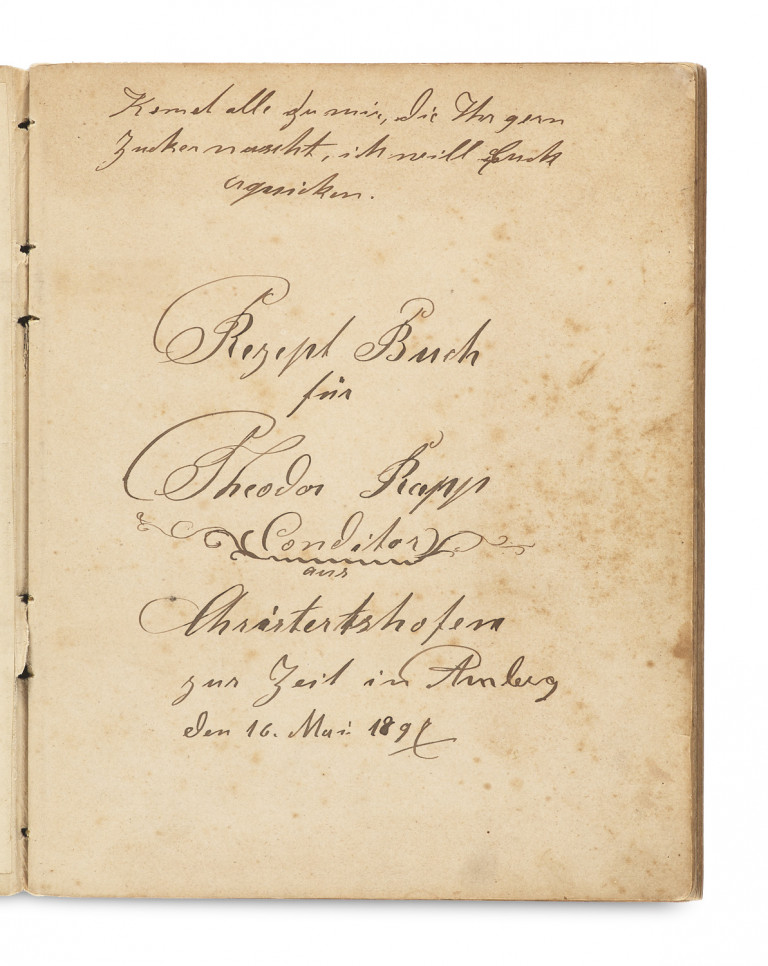 Komet alle zu mir, die Ihr gern
Zucker nascht, ich will Euch
erquicken.
Rezept Buch
für
Theodor Rapp
Conditor
aus
Christertshofen
zur Zeit in Amberg
den 16. Mai 189